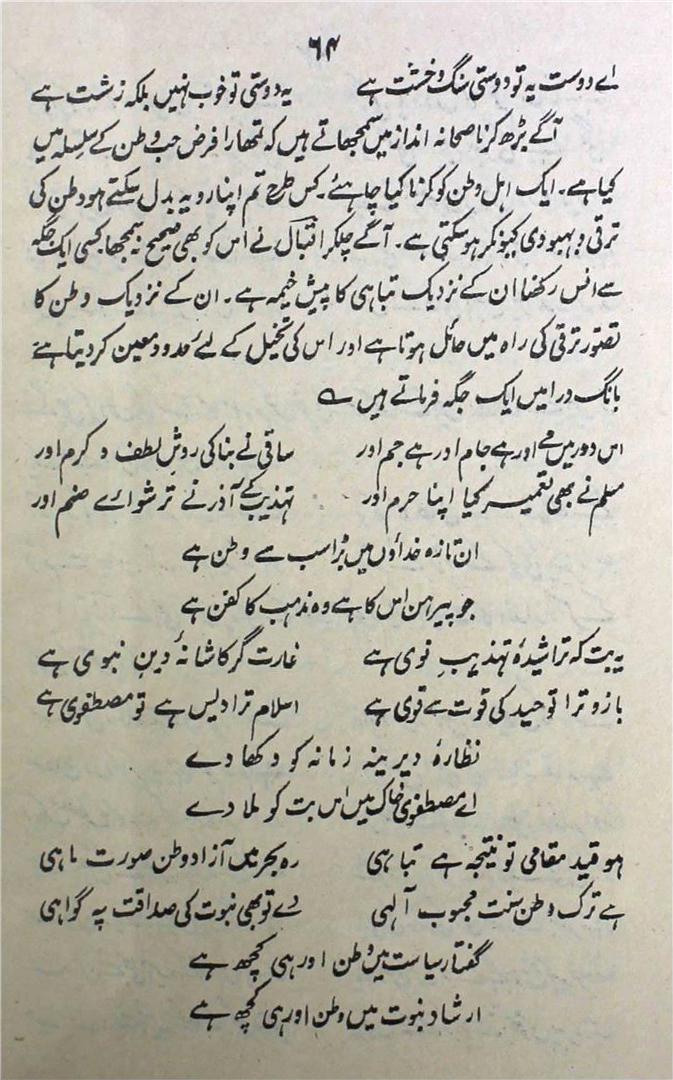 ۶۴
اے دوست یہ تو دوستی سنگ و خشت ہے یہ دوستی تو خوب نہیں بلکہ زشت ہے
آگے بڑھ کر ناصحانہ انداز میں سمجھاتے ہیں کہ تمھارا فرض حب وطن کے سلسلہ میں
کیا ہے۔ ایک اہل وطن کو کرنا کیا چاہئے۔ کس طرح تم اپنا رویہ بدل سکتے ہو وطن کی
ترقی و بہبودی کیونکر ہو سکتی ہے۔ آگے چلکر اقبال نے اس کو بھی صحیح نہ سمجھا کسی ایک جگہ
سے انس رکھنا ان کے نزدیک تباہی کا پیش خیمہ ہے۔ ان کے نزدیک وطن کا
تصور ترقی کی راہ میں حائل ہوتا ہے اور اس کی تخیل کے لئے حدود معین کر دیتا ہے
بانگ درا میں ایک جگہ فرماتے ہیں ؎
اس دور میں مے اور ہے جام اور ہے جم اور ساقی نے بنا کی روشِ لطف و کرم اور
مسلم نے بھی تعمیر کیا اپنا حرم اور تہذیب کے آذر نے ترشوائے صنم اور
ان تازہ خداؤں میں بڑا سب سے وطن ہے
جو پیرہن اس کا ہے وہ مذہب کا کفن ہے
یہ بت کہ تراشیدۂ تہذیبِ نوی ہے غارت گر کاشانۂ دینِ نبوی ہے
بازو ترا توحید کی قوت سے قوی ہے اسلام ترا دیس ہے تو مصطفوی ہے
نظارۂ دیرینہ زمانہ کو دکھا دے
اے مصطفوی خاک میں اس بت کو ملا دے
ہو قید مقامی تو نتیجہ ہے تباہی رہ بحر میں آزاد وطن صورت ماہی
ہے ترک وطن سنت محبوب آلہی دے تو بھی نبوت کی صداقت پہ گواہی
گفتار سیاست میں وطن اور ہی کچھ ہے
ارشاد نبوت میں وطن اور ہی کچھ ہے